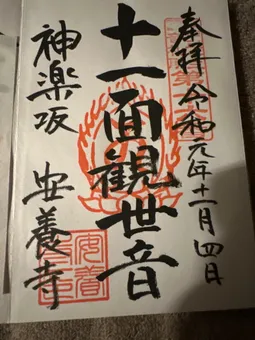 奉拝 令和元年十一月四日
十一面觀世音
神楽坂 安養寺